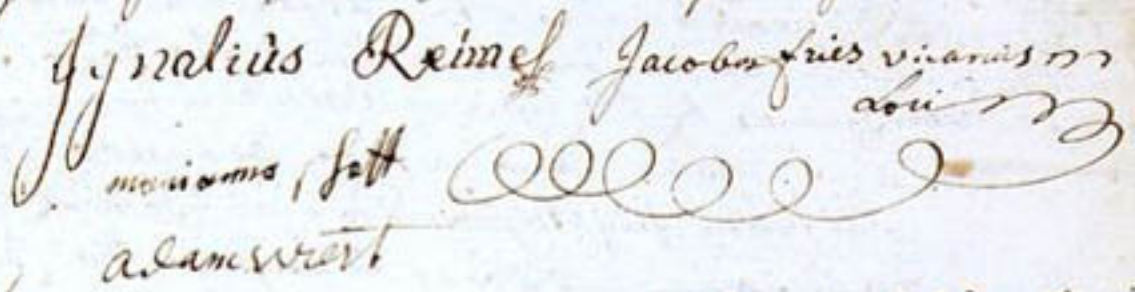 Ignatius Reimel Jacobus fries vicarius
Loci
marianna sett
adam